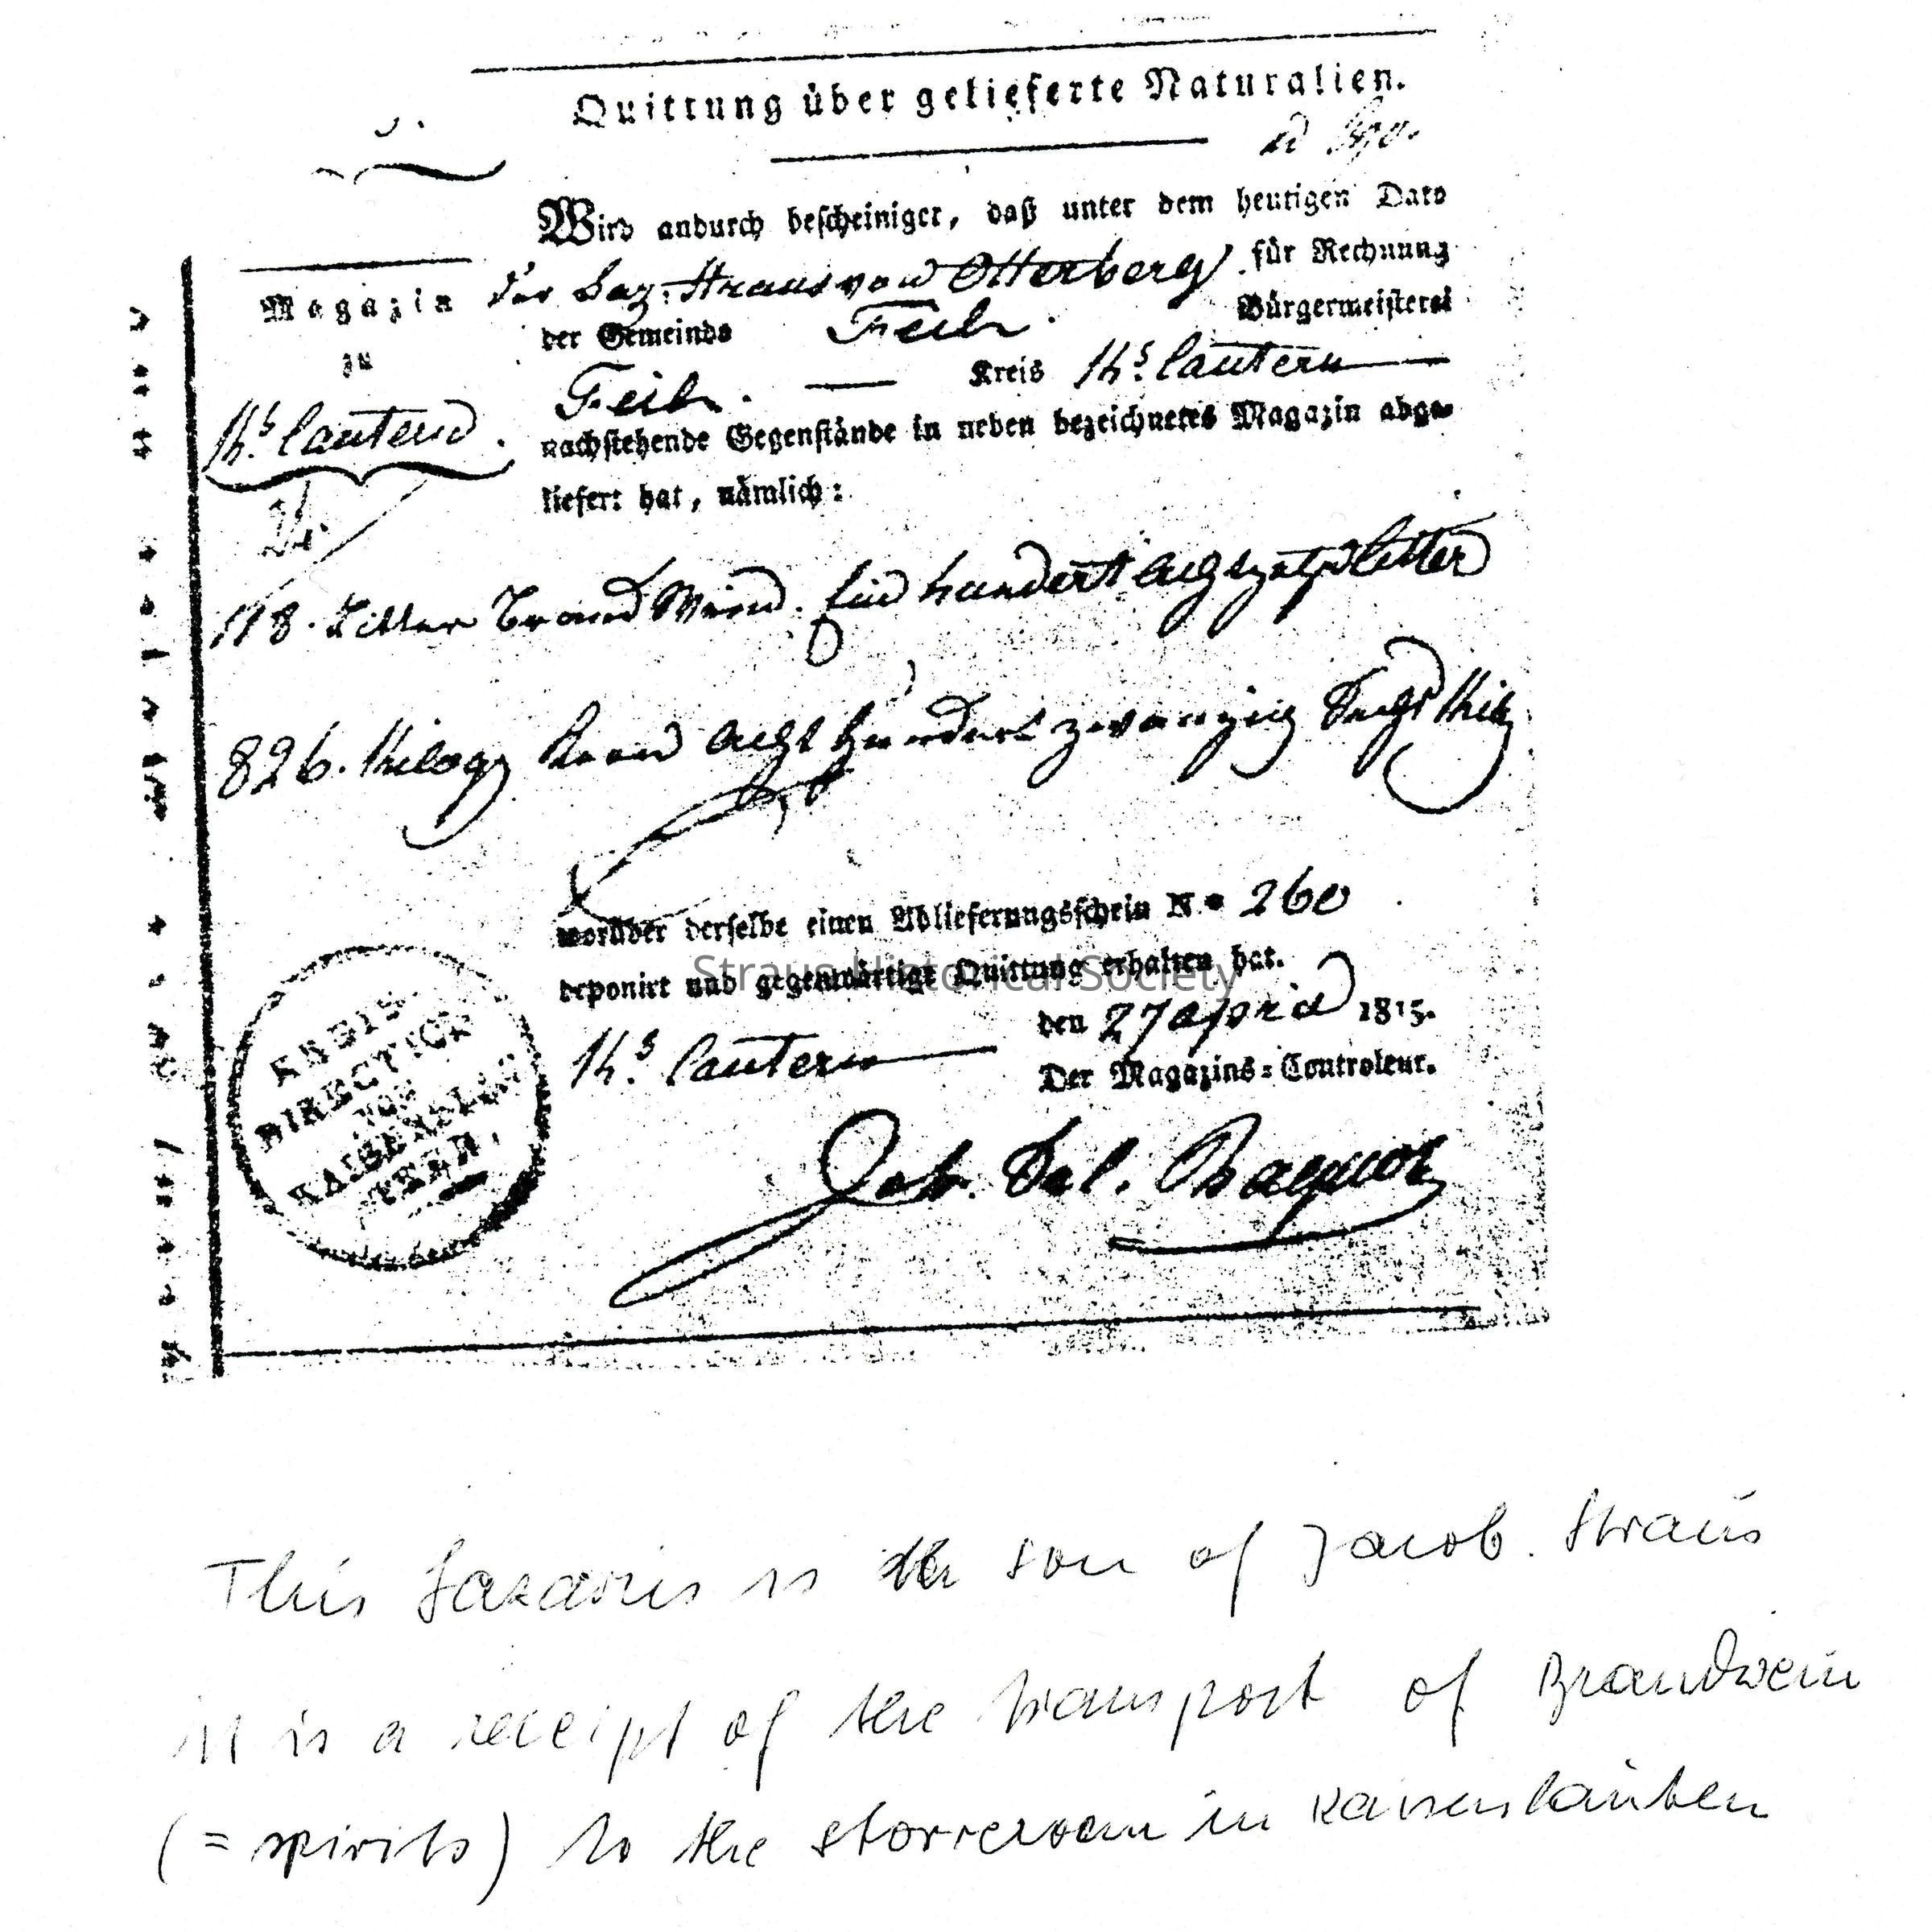 Quittung über gelieferte Naturalien.
Wird andurch bescheiniget, daß unter dem heutigen Dato
Der Laz. Straus von Otterberg für Rechnung
der Gemeinde Bürgermeisterei
Kreis Ks. lautern
nachstehende Gegenstände in neben bezeichnetes Magazin abge-
liefert hat, nämlich:
Magazin
zu
Ks. lautern
118. Litter BrandWein. Ein hundert achtzehn Litter
826. Kilogr Korn acht hundert zwanzig Sechs Kilogr
worüber derselbe einen Ablieferungsschein N.o 260
deponirt und gegenwärtige Quittung erhalten hat.
Straus Historical Society
Ks. lautern den 27 april 1815.
Der Magazins-Controleur.
KREIS
DIRECTION
VON
KAISERSLAU
TERN.
This Lazarus is the son of Jacob. Straus
it is a receipt of the transport of Brandwein
(= spirits) to the storreroom in Kaiserslautern